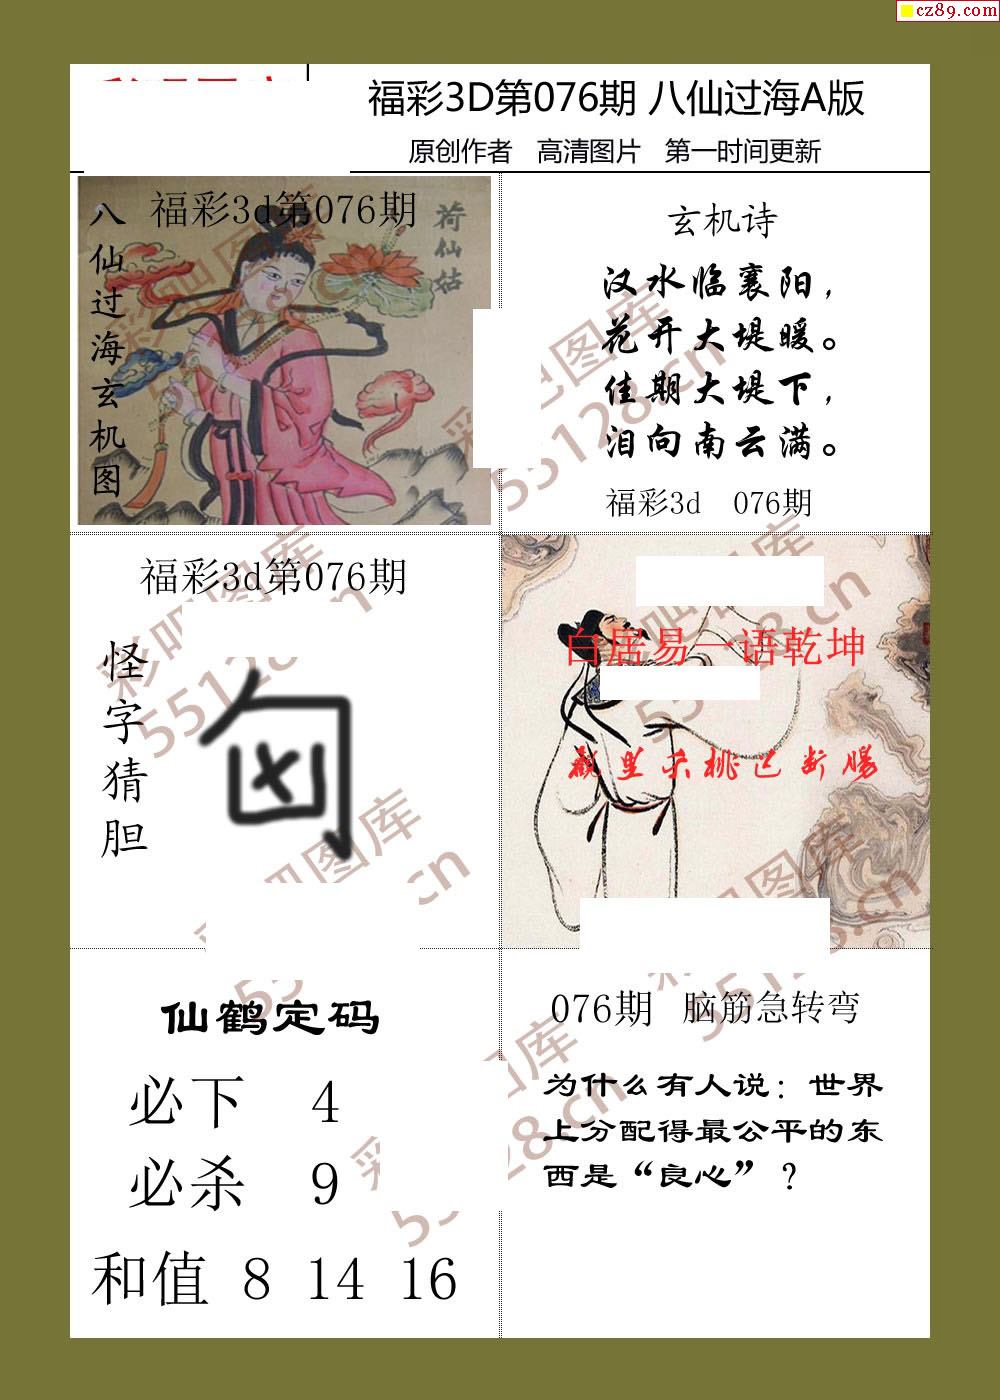 cz89.com
福彩3D第076期 八仙过海A版
原创作者 高清图片 第一时间更新
福彩3d第076期
八仙过海玄机图
荷仙姑
玄机诗
汉水临襄阳，
花开大堤暖。
佳期大堤下，
泪向南云满。
福彩3d 076期
福彩3d第076期
怪字猜胆
白居易一语乾坤
断肠
仙鹤定码
必下 4
必杀 9
和值 8 14 16
076期 脑筋急转弯
为什么有人说：世界
上分配得最公平的东
西是“良心”？
彩吧图库
55128.cn